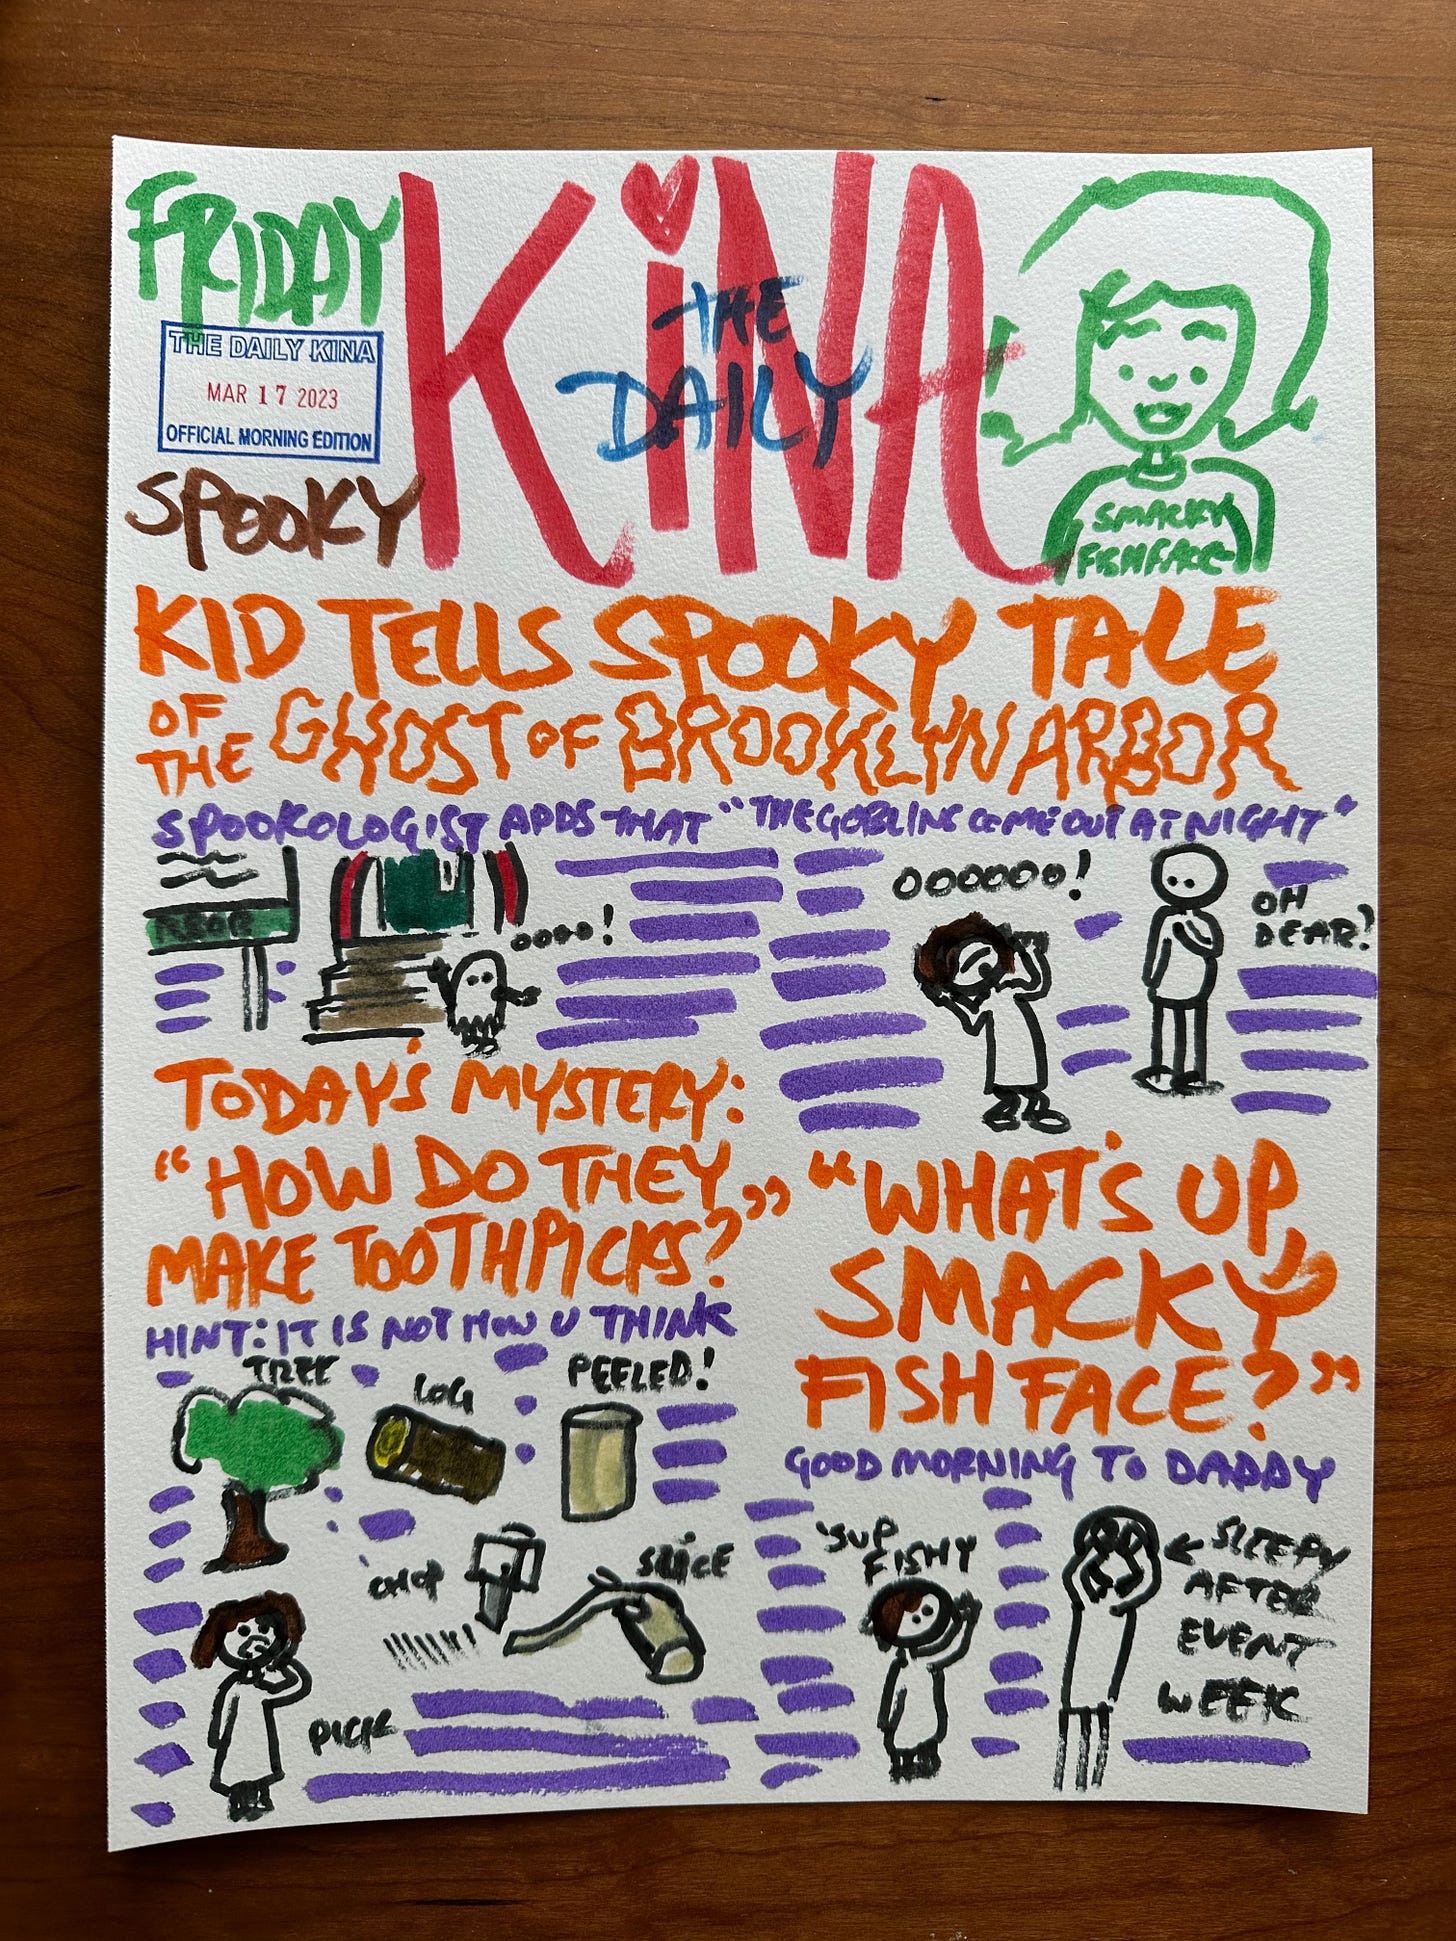 FRIDAY
THE DAILY KINA
MAR 17 2023
OFFICIAL MORNING EDITION
SPOOKY
KiNA
THE
DAILY
SMACKY
FISHFACE
KID TELLS SPOOKY TALE
OF THE GHOST OF BROOKLYN ARBOR
SPOOKOLOGIST ADDS THAT "THE GOBLINS COME OUT AT NIGHT"
ARBOR
OOOO!
OOOOOOO!
OH
DEAR?
TODAY'S MYSTERY:
"HOW DO THEY
MAKE TOOTHPICKS?"
HINT: IT IS NOT HOW U THINK
TREE
LOG
PEELED!
CHOP
SLICE
PICK
"WHAT'S UP,
SMACKY
FISH FACE?"
GOOD MORNING TO DADDY
'SUP
FISHY
← SLEEPY
AFTER
EVENT
WEEK